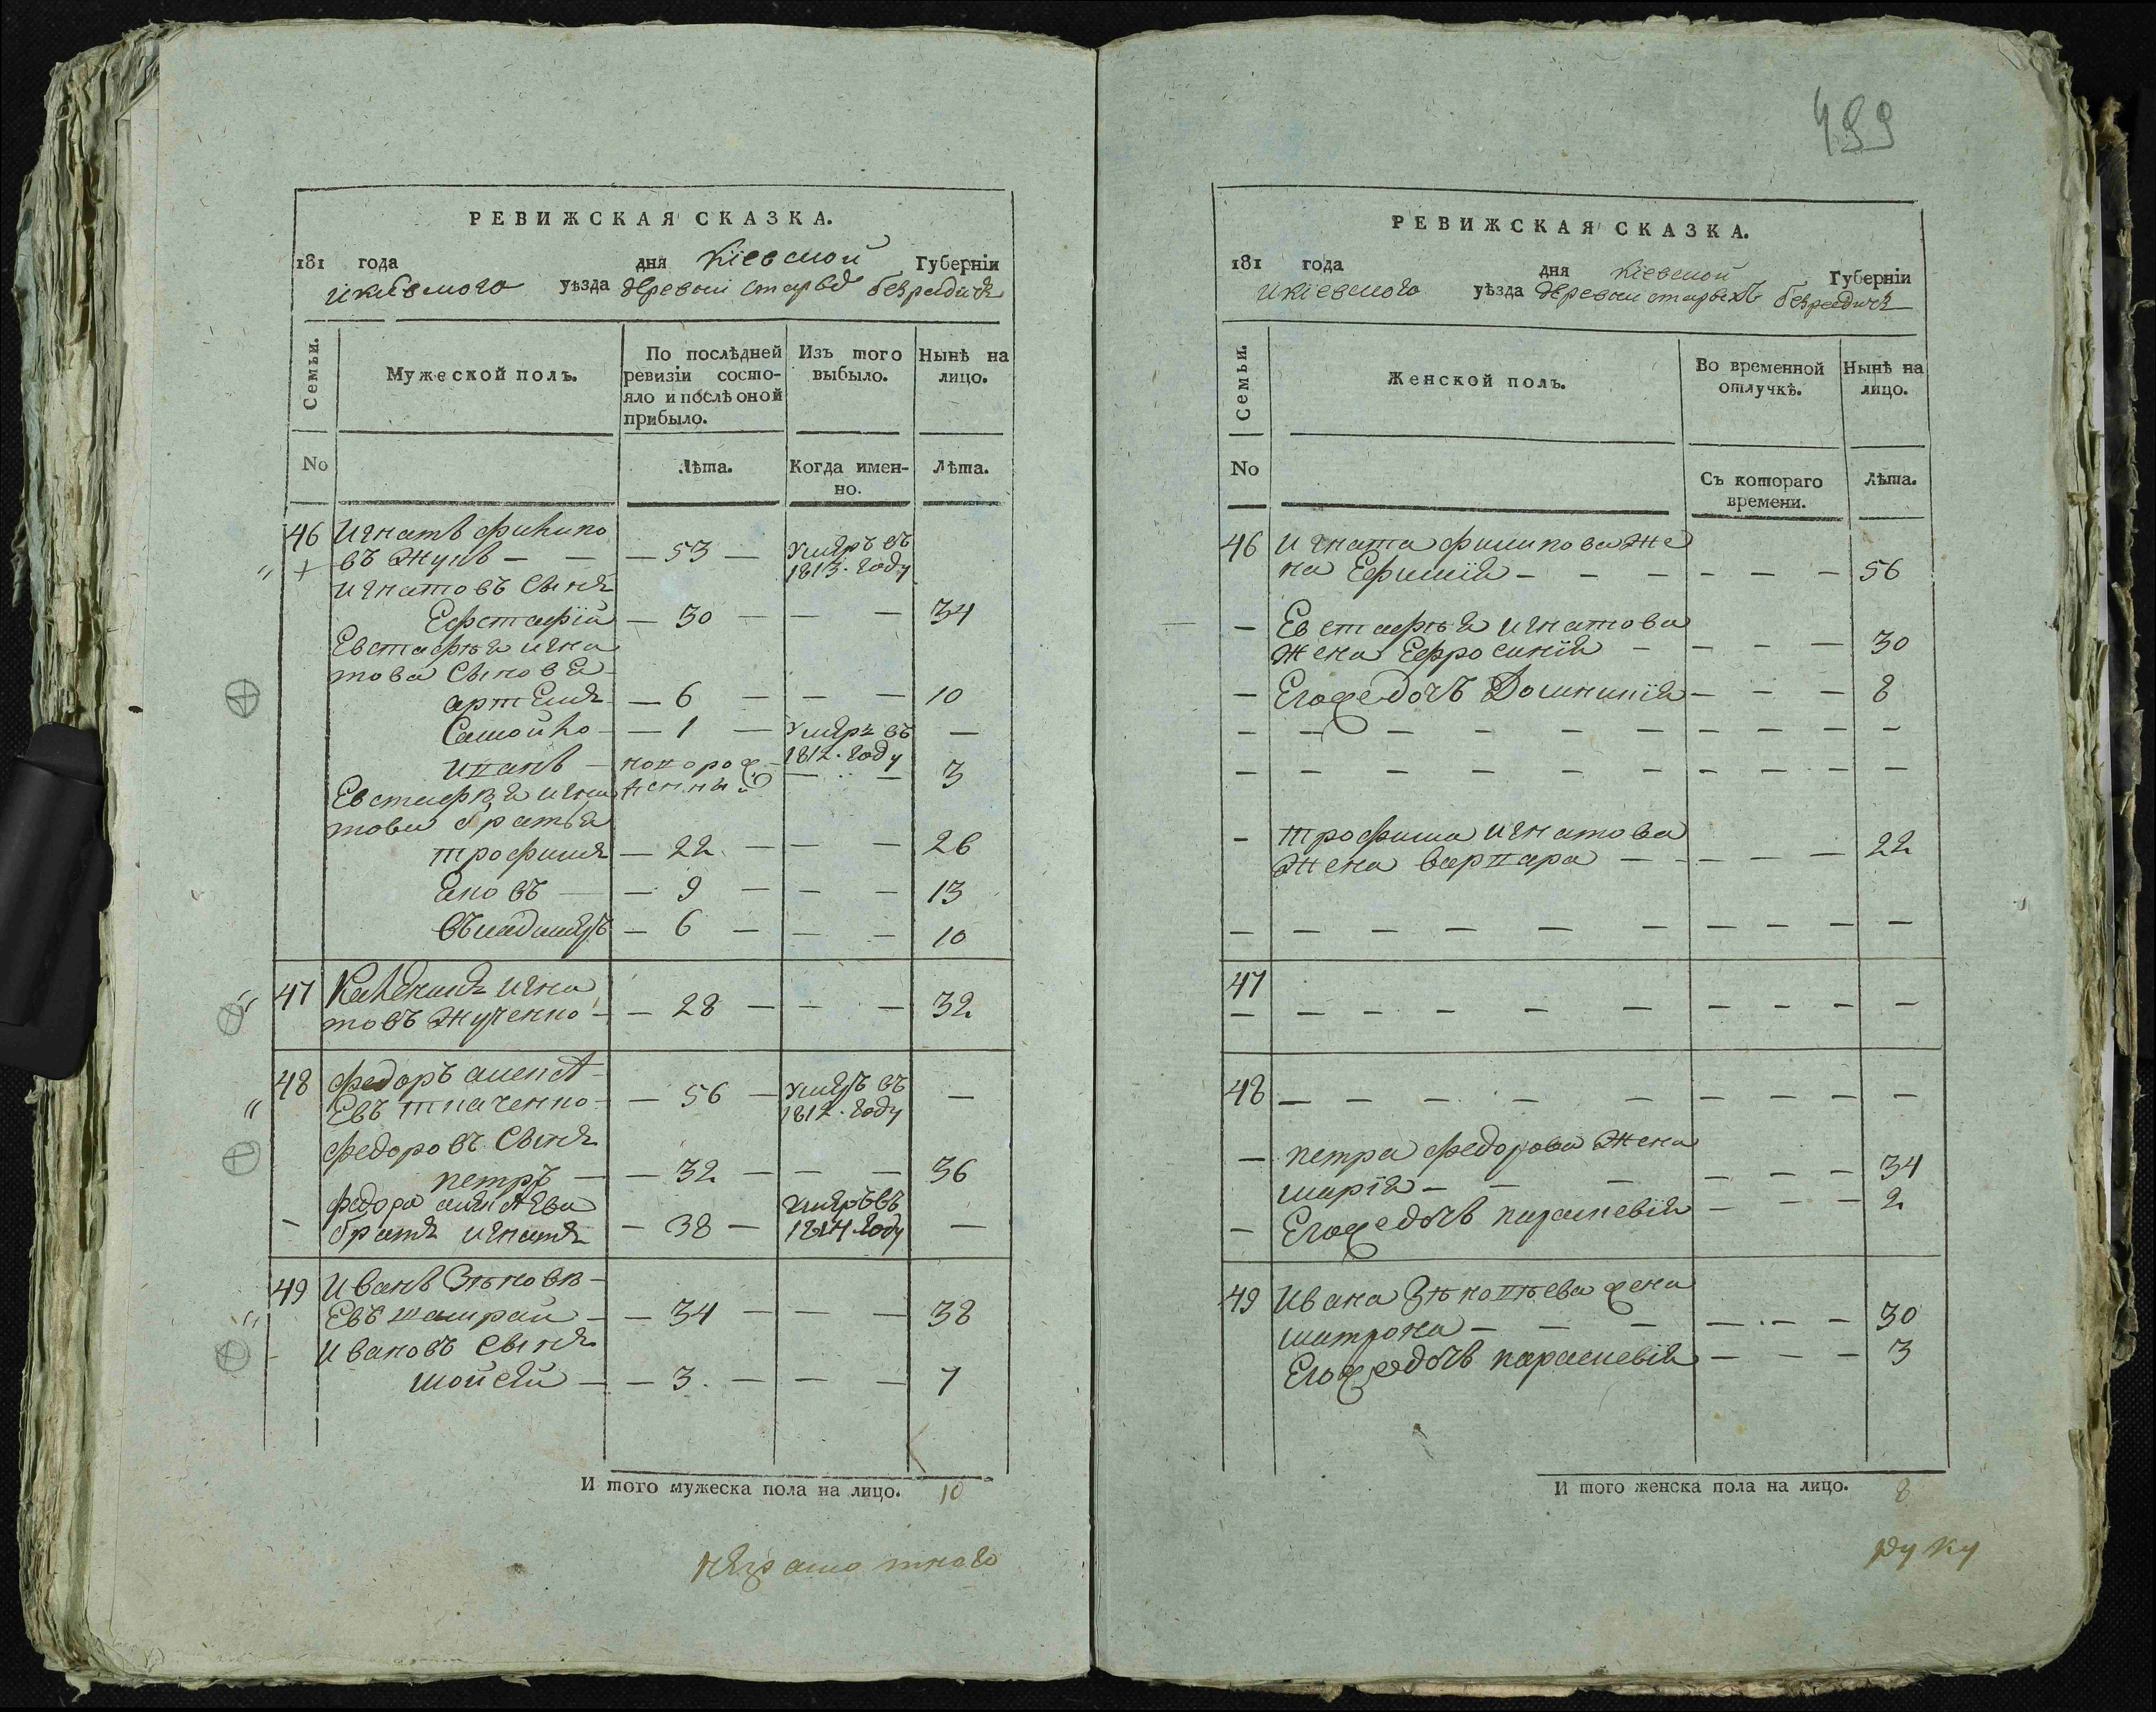 РЕВИЖСКАЯ СКАЗКА.
181 года дня Кіевской Губерніи
и кіевского уѣзда деревни старых безрадичъ
Семьи. Мужеской полъ. По послѣдней ревизіи состояло и послѣ оной прибыло. Изъ того выбыло. Нынѣ на лицо.
No Лѣта. Когда именно. Лѣта.
46 Игнатъ филипо
въ Жукъ — — — 53 — Умеръ въ 1813. году
игнатовъ сынъ
Ефстафій — 30 — — — 34
Евстафѣя игна
това сыновья
артемъ — 6 — — — 10
Самойло — 1 — умеръ въ 1812. году —
иванъ — новорожденный — — 3
Евстафѣя игна
това братья
трофимъ — 22 — — — 26
яковъ — 9 — — — 13
въладимеръ — 6 — — — 10
47 игна
товъ Жученко — 28 — — — 32
48 федоръ алексѣ
евъ ткаченко — 56 — умеръ въ 1812. году —
федоровъ сынъ
петръ — 32 — — — 36
федора алексѣева
братъ игнатъ — 38 — умеръ въ 1814. году —
49 Иванъ Зѣновѣ
евъ шамрай — 34 — — — 38
ивановъ сынъ
мойсей — 3. — — — 7
И того мужеска пола на лицо. 10
499
РЕВИЖСКАЯ СКАЗКА.
181 года дня Кіевской Губерніи
и кіевского уѣзда деревни старыхъ безрадичъ
Семьи. Женской полъ. Во временной отлучкѣ. Нынѣ на лицо.
No Съ котораго времени. Лѣта.
46 Игната филипова же
на Ефимія — — — — — — 56
— Евстафѣя игнатова
жена Ефросинія — — — — 30
— Его же дочъ Домникія — — — 8
— трофима игнатова
жена варвара — — — — — 22
47
48
— петра федорова жена
марія — — — — — — 34
— Его же дочъ параскевія — — — 2
49 Ивана Зѣновѣева жена
матрона — — — — — — 30
Его же дочъ параскевія — — — 3
И того женска пола на лицо. 8
руку